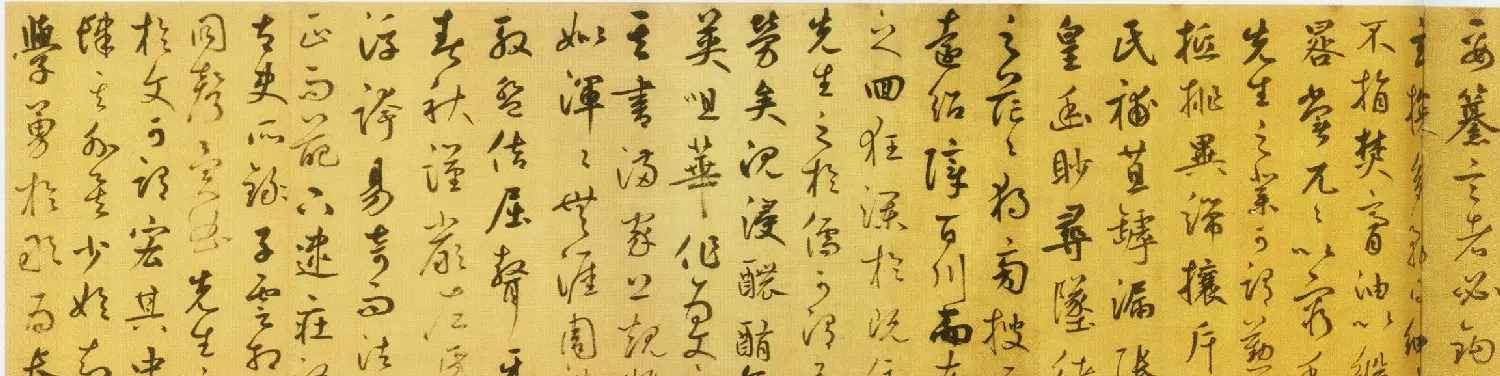 要纂言者必鈎
玄多務得細
不捐焚膏油以繼
晷常兀兀以窮
先生之業可謂勤
抵排異端攘斥
民補苴罅漏張
皇幽眇尋墜緒
之茫茫獨旁搜
遠紹障百川而東
之回狂瀾於既倒
先生之於儒可謂
勞矣沉浸醲郁
英咀華作為文
其書滿家上規姚
姒渾渾無涯周誥
殷盤佶屈聱牙
春秋謹嚴左氏
浮誇易奇而法
正而葩下逮莊
太史所錄子雲相
同聲異曲先生之
於文可謂宏其中
肆其外矣少始知
學勇於敢為長